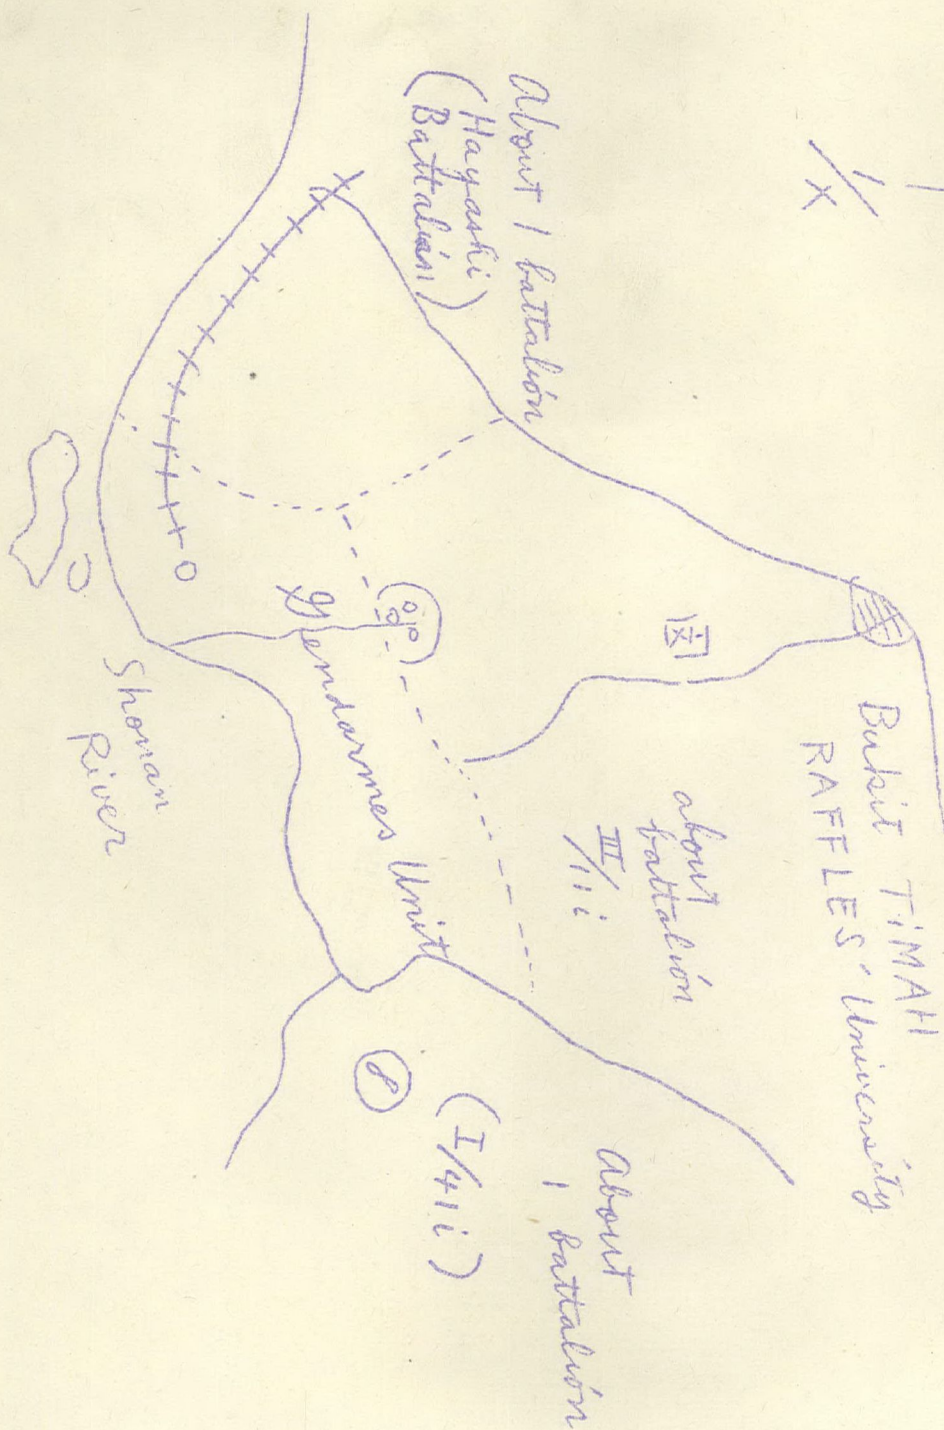 Bukit TIMAH
RAFFLES' University
About 1 battalion
(Hayashi
Battalion)
about
battalion
III/11i
About
1 battalion
(I/41i)
Gendarmes Unit
Shonan
River